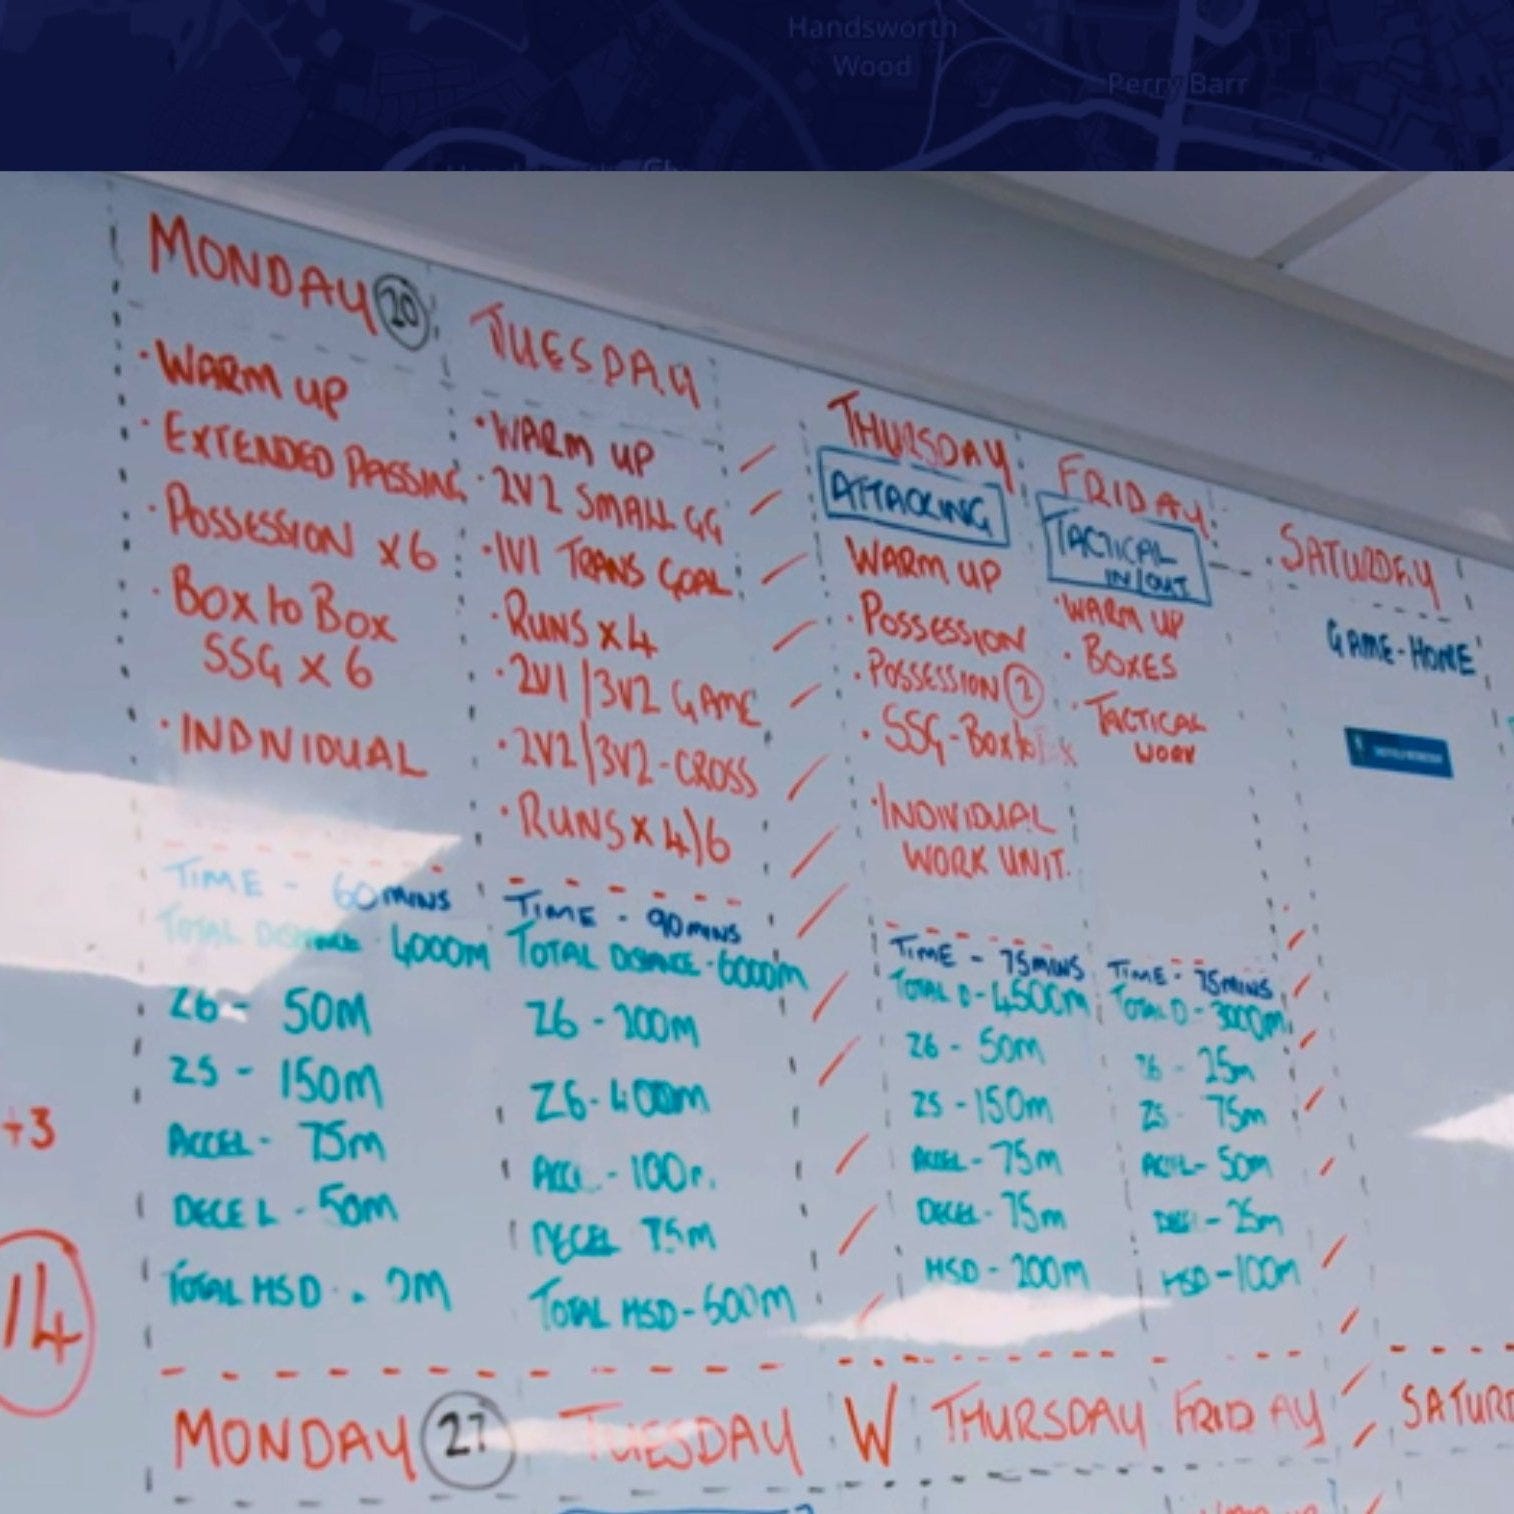 Handsworth
Wood
Perry Barr
MONDAY 20
· WARM UP
· EXTENDED PASSING
· POSSESSION X6
· BOX to BOX
SSG X 6
· INDIVIDUAL
TIME - 60 MINS
TOTAL DISTANCE - 4000M
Z6 - 50M
Z5 - 150M
ACCEL - 75m
DECEL - 50m
TOTAL HSD
TUESDAY
· WARM UP
· 2V2 SMALL GG
· 1V1 TRANS GOAL
· RUNS X 4
· 2V1/3V2 GAME
· 2V2/3V2-CROSS
· RUNS X 4/6
TIME - 90MINS
TOTAL DISTANCE - 6000m
Z6 - 200m
Z6 - 400m
ACCL - 100
DECEL 75m
TOTAL HSD - 600m
THURSDAY
ATTACKING
WARM UP
· POSSESSION
· POSSESSION 2
· SSG - BOX to
· INDIVIDUAL
WORK UNIT.
TIME - 75MINS
TOTAL D - 4500m
Z6 - 50m
Z5 - 150m
ACCEL - 75m
DECEL - 75m
HSD - 200m
FRIDAY
TACTICAL
IN/OUT
· WARM UP
· BOXES
· TACTICAL
WORK
TIME - 75MINS
TOTAL D - 3000m
Z6 - 25m
Z5 - 75m
ACCL - 50m
- 25m
HSD - 100m
SATURDAY
GAME - HOME
+3
14
MONDAY 27 TUESDAY W THURSDAY FRIDAY SATURD